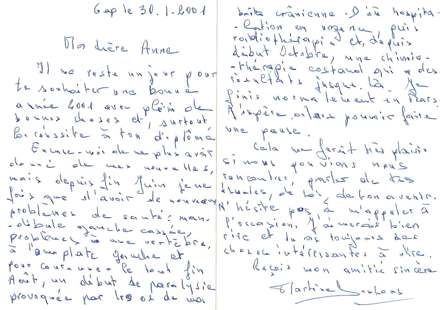 Gap le 30.1.2001
Ma chère Anne
Il me reste un jour pour
te souhaiter une bonne
année 2001 avec plein de
bonnes choses et, surtout
la réussite à ton diplôme
Excuse-moi de ne plus avoir
donné de mes nouvelles,
mais depuis fin Juin je ne
fais que d'avoir de nouveaux
problèmes de santé: man-
-dibule gauche cassée,
problèmes à une vertèbre,
à l'omoplate gauche et
pour couronner le tout fin
Août, un début de paralysie
provoquée par les os de ma
boîte crânienne. D'où hospita-
-lisation en urgence, puis
radiothérapie et, depuis
début Octobre, une chimio-
-thérapie costaud qui a des
résultats jusque là. Je
finis normalement en Mars.
J'espère alors pouvoir faire
une pause.
Cela me ferait très plaisir
si nous pouvions nous
rencontrer, parler de tes
études, de toi, de ton avenir.
N'hésite pas à m'appeler à
l'occasion. J'aimerais bien
rire et tu as toujours des
choses intéressantes à dire.
Reçois mon amitié sincère
Martine